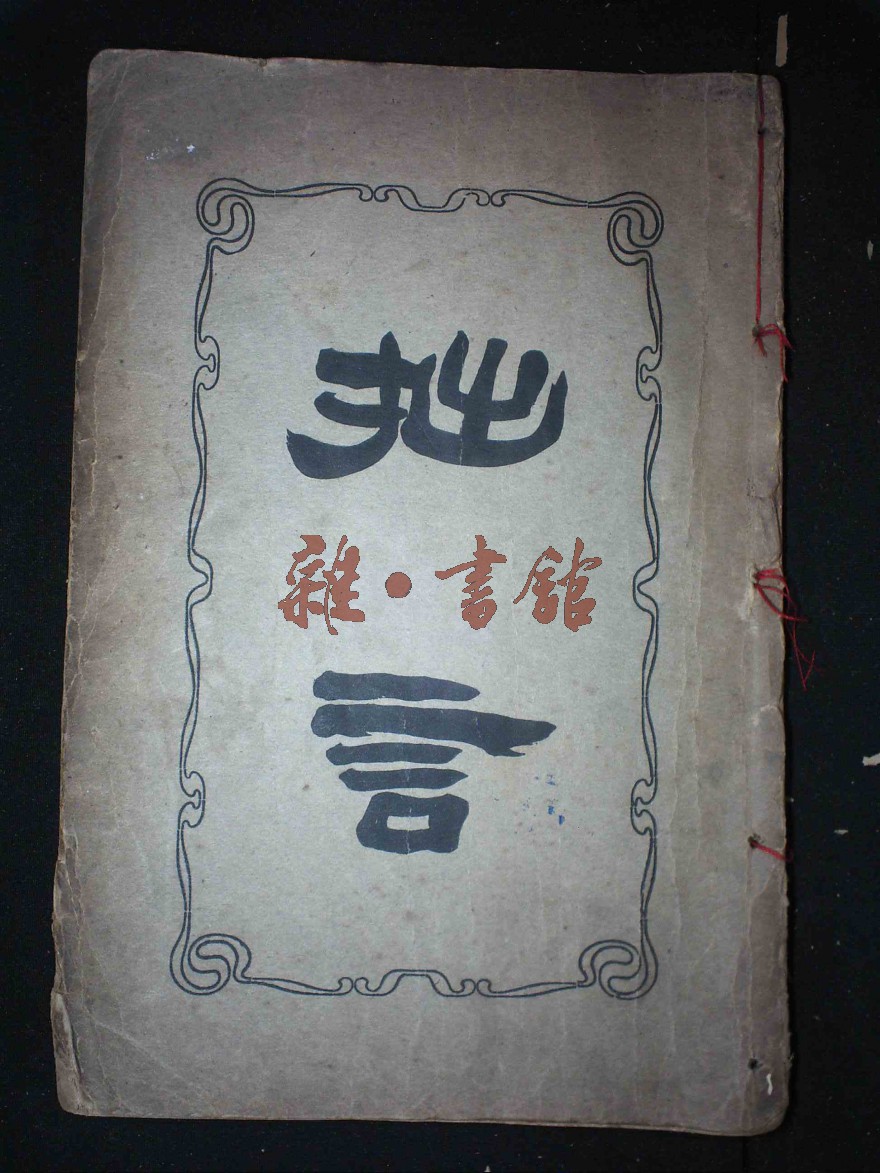 拙
雜•書館
言